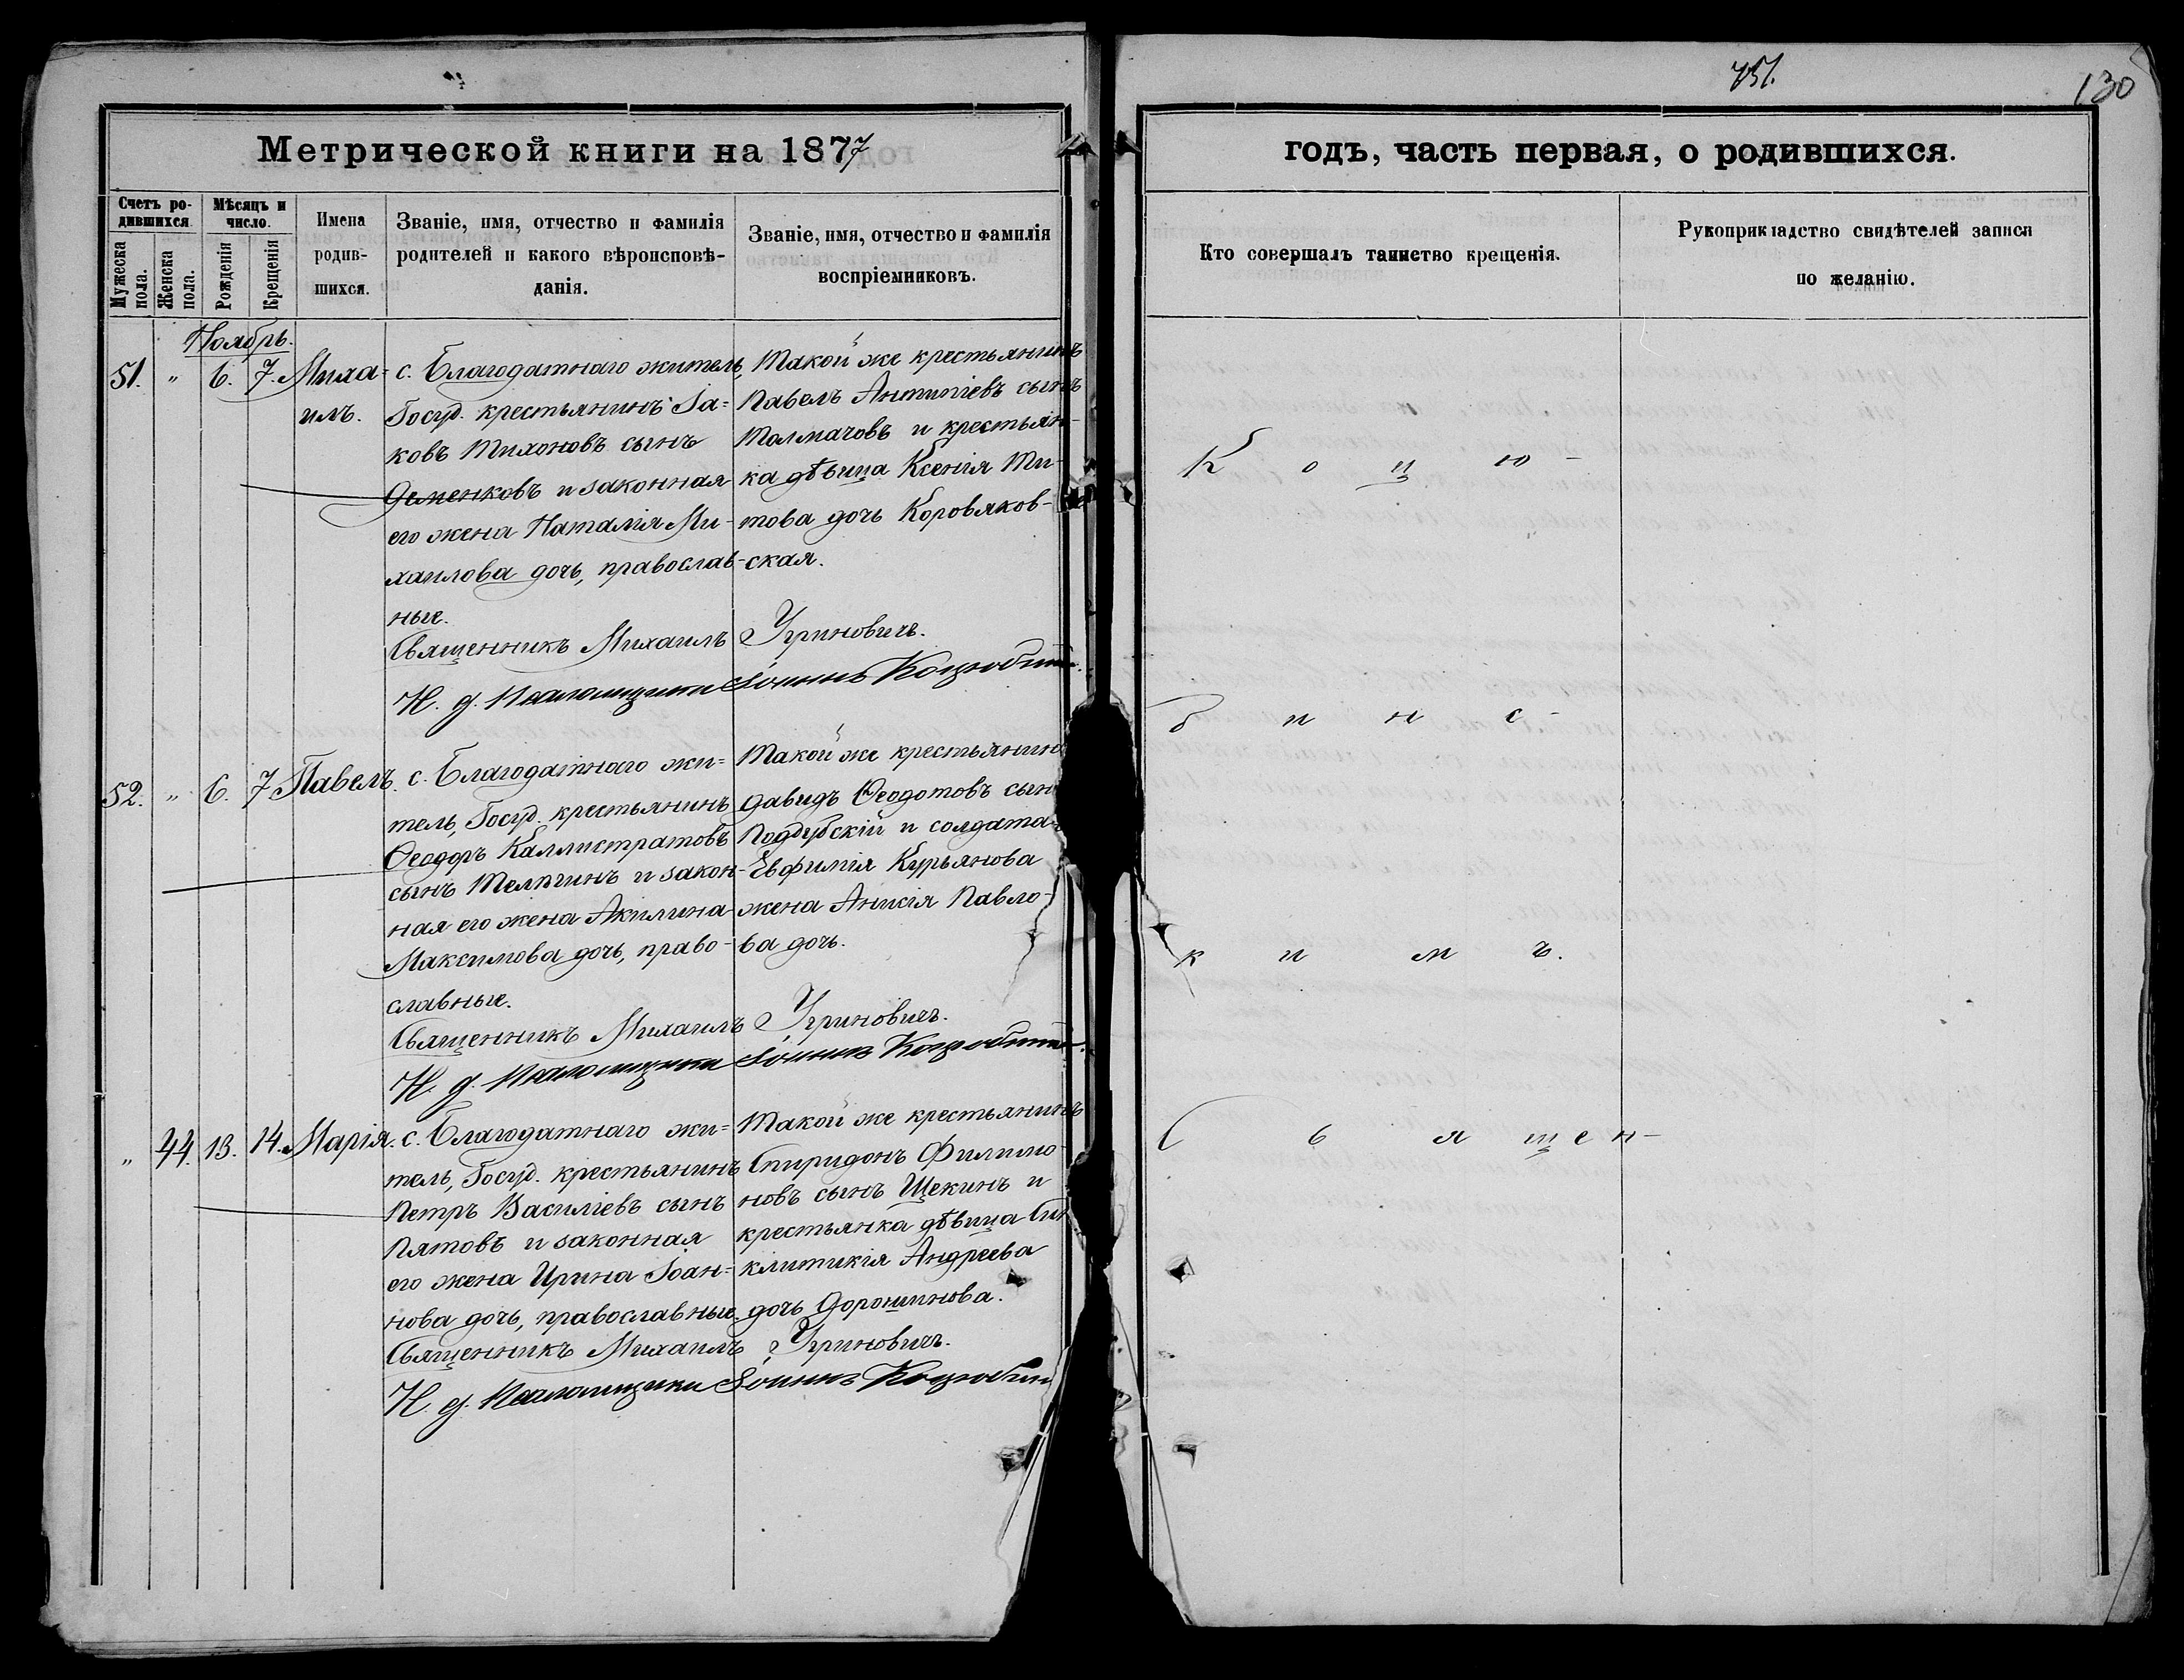 751.
130
Метрической книги на 1877
годъ, часть первая, о родившихся.
Счетъ ро-
дившихся.
Мужеска пола.
Женска пола.
Мѣсяцъ и
число.
Рожденія
Крещенія
Имена
родив-
шихся.
Званіе, имя, отчество и фамилія
родителей и какого вѣроисповѣ-
данія.
Званіе, имя, отчество и фамилія
воспріемниковъ.
Кто совершалъ таинство крещенія.
Рукоприкладство свидѣтелей записи
по желанію.
Ноябрь.
51. " 6. 7. Миха-
илъ.
с. Благодатнаго житель,
Госуд. крестьянинъ Іа-
ковъ Тихоновъ сынъ
Деменковъ и законная
его жена Наталія Ми-
хаилова дочь, православ-
ные.
Такой же крестьянинъ
Павелъ Антипіевъ сынъ
Толмачовъ и крестьян-
ка дѣвица Ксенія Ти-
това дочь Коровяков-
ская.
Священникъ Михаилъ Угриновичъ.
И. д. Псаломщика Іоаннъ
52. " 6. 7. Павелъ.
с. Благодатнаго жи-
тель, Госуд. крестьянинъ
Ѳеодоръ Каллистратовъ
сынъ и закон-
ная его жена Акилина
Максимова дочь, право-
славные.
Такой же крестьянинъ
Давидъ Ѳеодотовъ сынъ
Поддубскій и солдата
Евфимія Курьянова
жена Анисія Павло-
ва дочь.
Священникъ Михаилъ Угриновичъ.
И. д. Псаломщика Іоаннъ
" 44. 13. 14. Марія.
с. Благодатнаго жи-
тель, Госуд. крестьянинъ
Петръ Василіевъ сынъ
Пятовъ и законная
его жена Ирина Іоан-
нова дочь, православные.
Такой же крестьянинъ
Спиридонъ Филимо-
новъ сынъ Щекинъ и
крестьянка дѣвица Син
клитикія Андреева
дочь Дорошинова.
Священникъ Михаилъ Угриновичъ.
И. д. Псаломщика Іоаннъ
К о ц ю -
б и н с -
к и м ъ.
С в я щ е н -